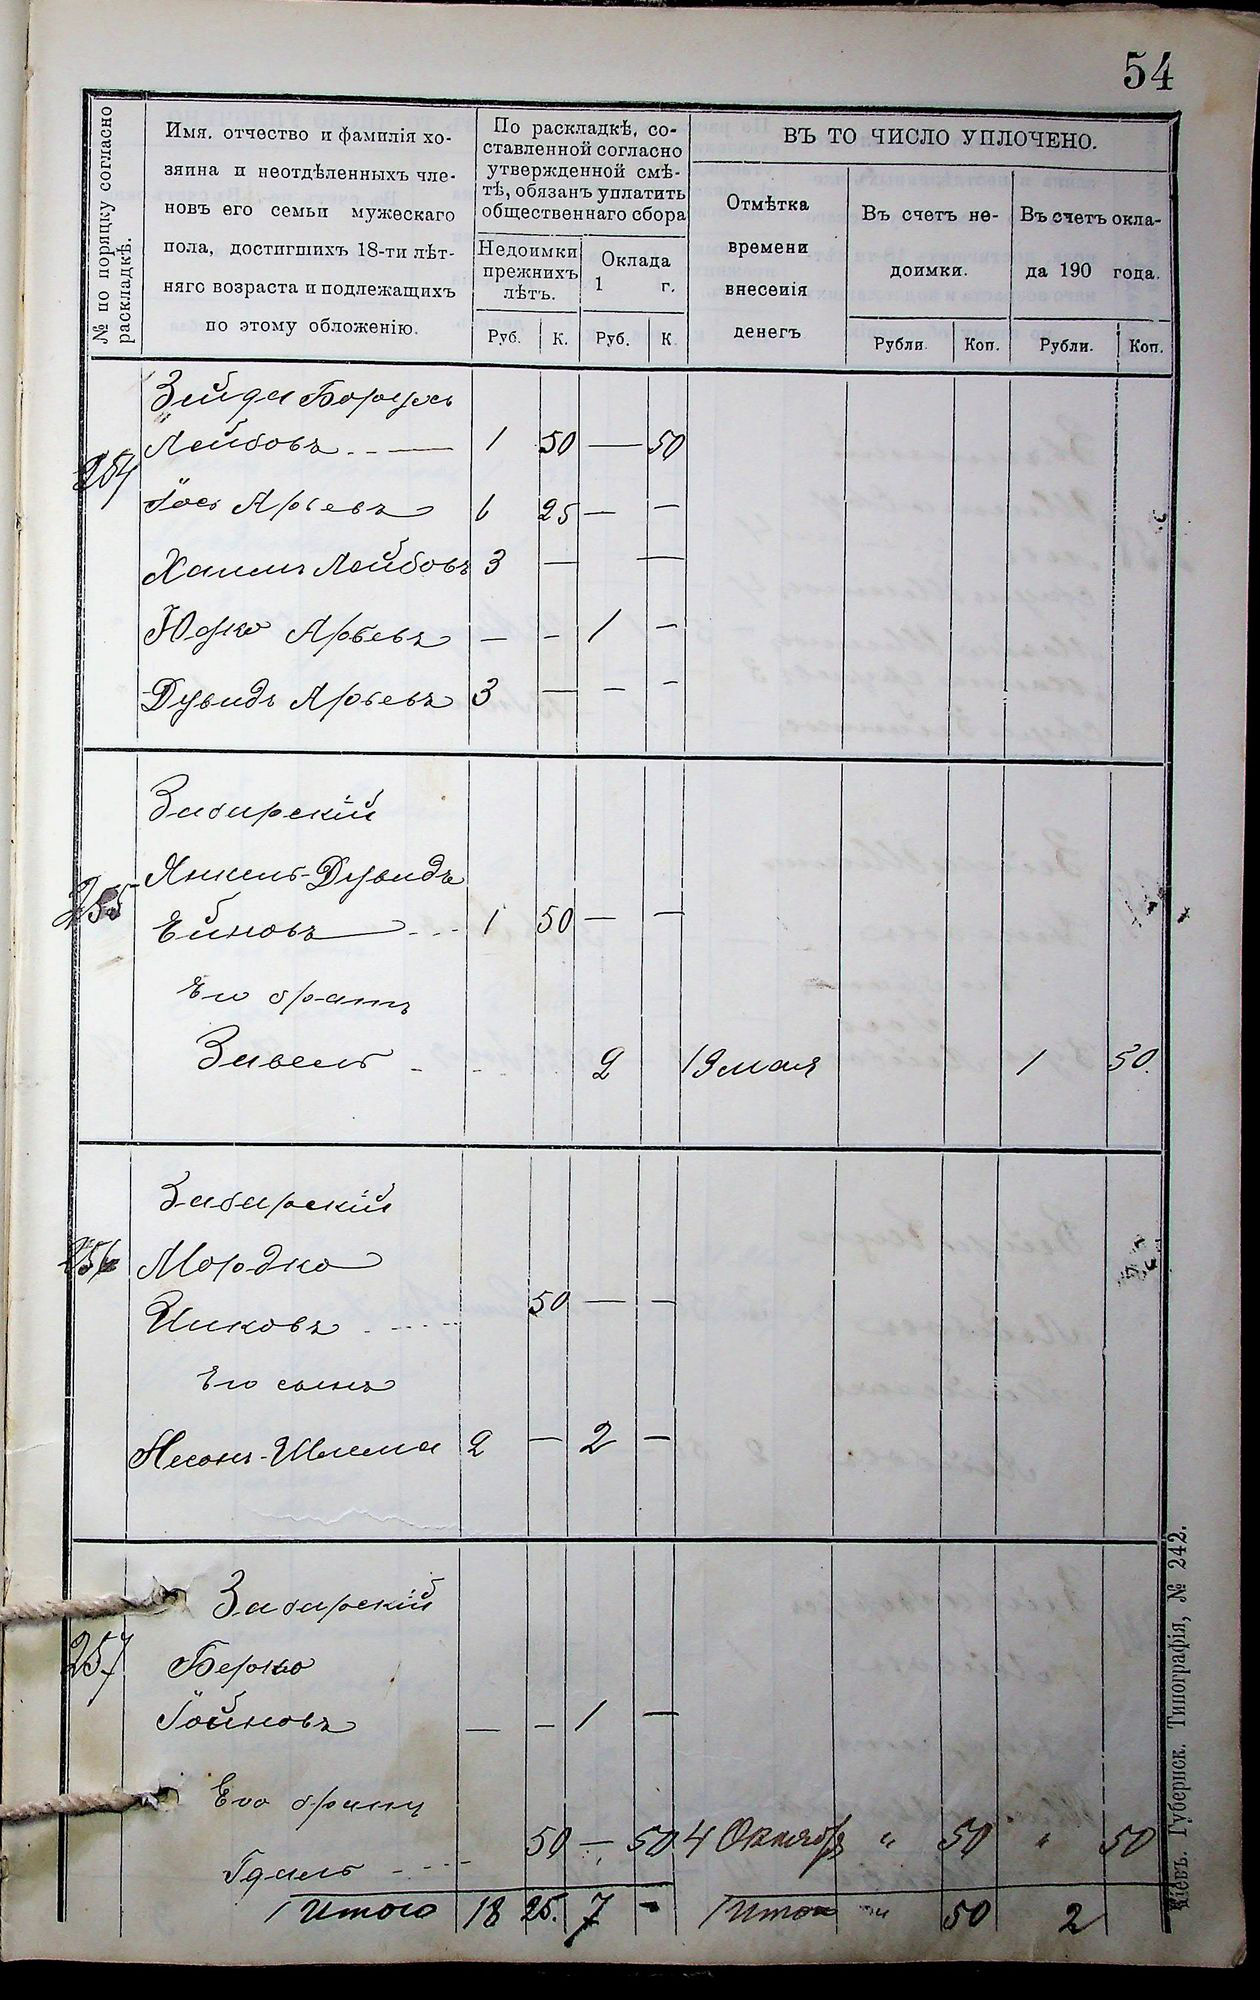 54
№ по поряцку согласно раскладкѣ.
Имя, отчество и фамилія хо-
зяина и неотдѣленныхъ чле-
новъ его семьи мужескаго
пола, достигшихъ 18-ти лѣт-
няго возраста и подлежащихъ
по этому обложенію.
По раскладкѣ, со-
ставленной согласно
утвержденной смѣ-
тѣ, обязанъ уплатить
общественнаго сбора
Недоимки
прежнихъ
лѣтъ.
Оклада
1 г.
Руб. К. Руб. К.
ВЪ ТО ЧИСЛО УПЛОЧЕНО.
Отмѣтка
времени
внесенія
денегъ
Въ счетъ не-
доимки.
Въ счетъ окла-
да 190 года.
Рубли. Коп. Рубли. Коп.
Зейда Борухъ
254 Лейбовъ 1 50 — 50
Іось Арьевъ 6 25 — —
Хаимъ Лейбовъ 3 — —
Юдко Арьевъ — - 1 —
Дувидъ Арьевъ 3 — - -
Забарскій
Янкель-Дувидъ
255 Ейновъ 1 50 — —
Его братъ
Завель 2 19 мая 1 50.
Забарскій
256 Мордко
Ицковъ 50 — —
Его сынъ
Шлема 2 — 2 —
Забарскій
257 Берко
Іойновъ — - 1 —
Его братъ
50 — 50 4 Октября " 50 " 50
Гдаль
Итого 18 25. 7 - Итого " 50 2
Кіевъ. Губернск. Типографія, № 242.